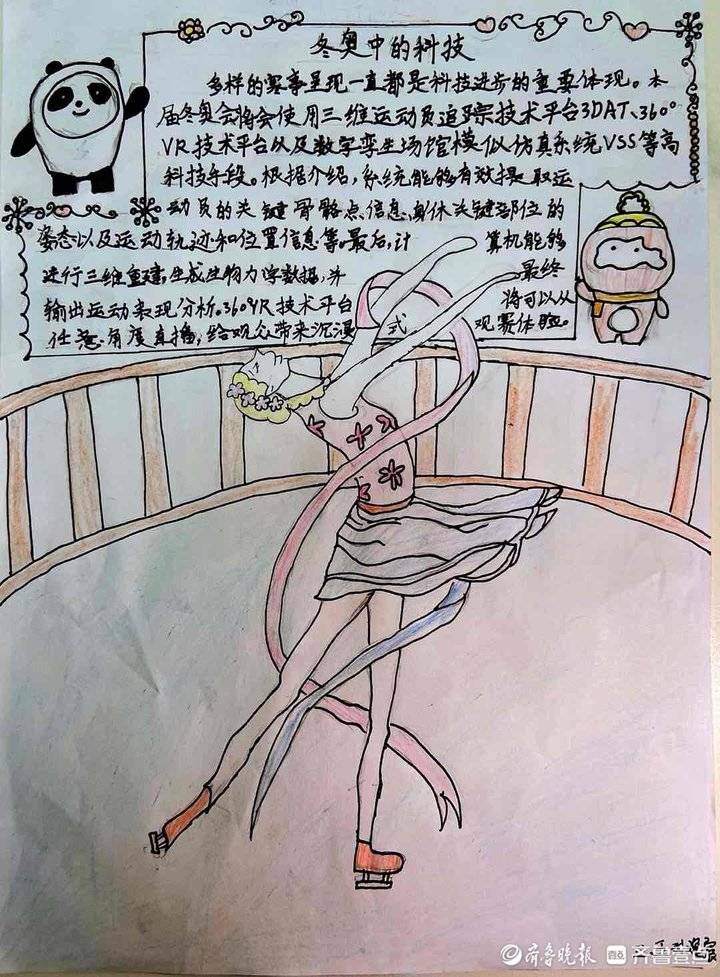 冬奥中的科技
多样的赛事呈现一直都是科技进步的重要体现。本
届冬奥会将会使用三维运动员追踪技术平台3DAT、360°
VR技术平台以及数字孪生场馆模似仿真系统VSS等高
科技手段。根据介绍,系统能够有效提取运
动员的关键骨骼点信息、身体关键部位的
姿态以及运动轨迹和位置信息等。最后,计算机能够
进行三维重建,生成生物力学数据,并最终
输出运动表现分析。360°VR技术平台将可以从
任意角度直播,给观众带来沉浸式观赛体验。
齐鲁晚报 齐鲁壹点